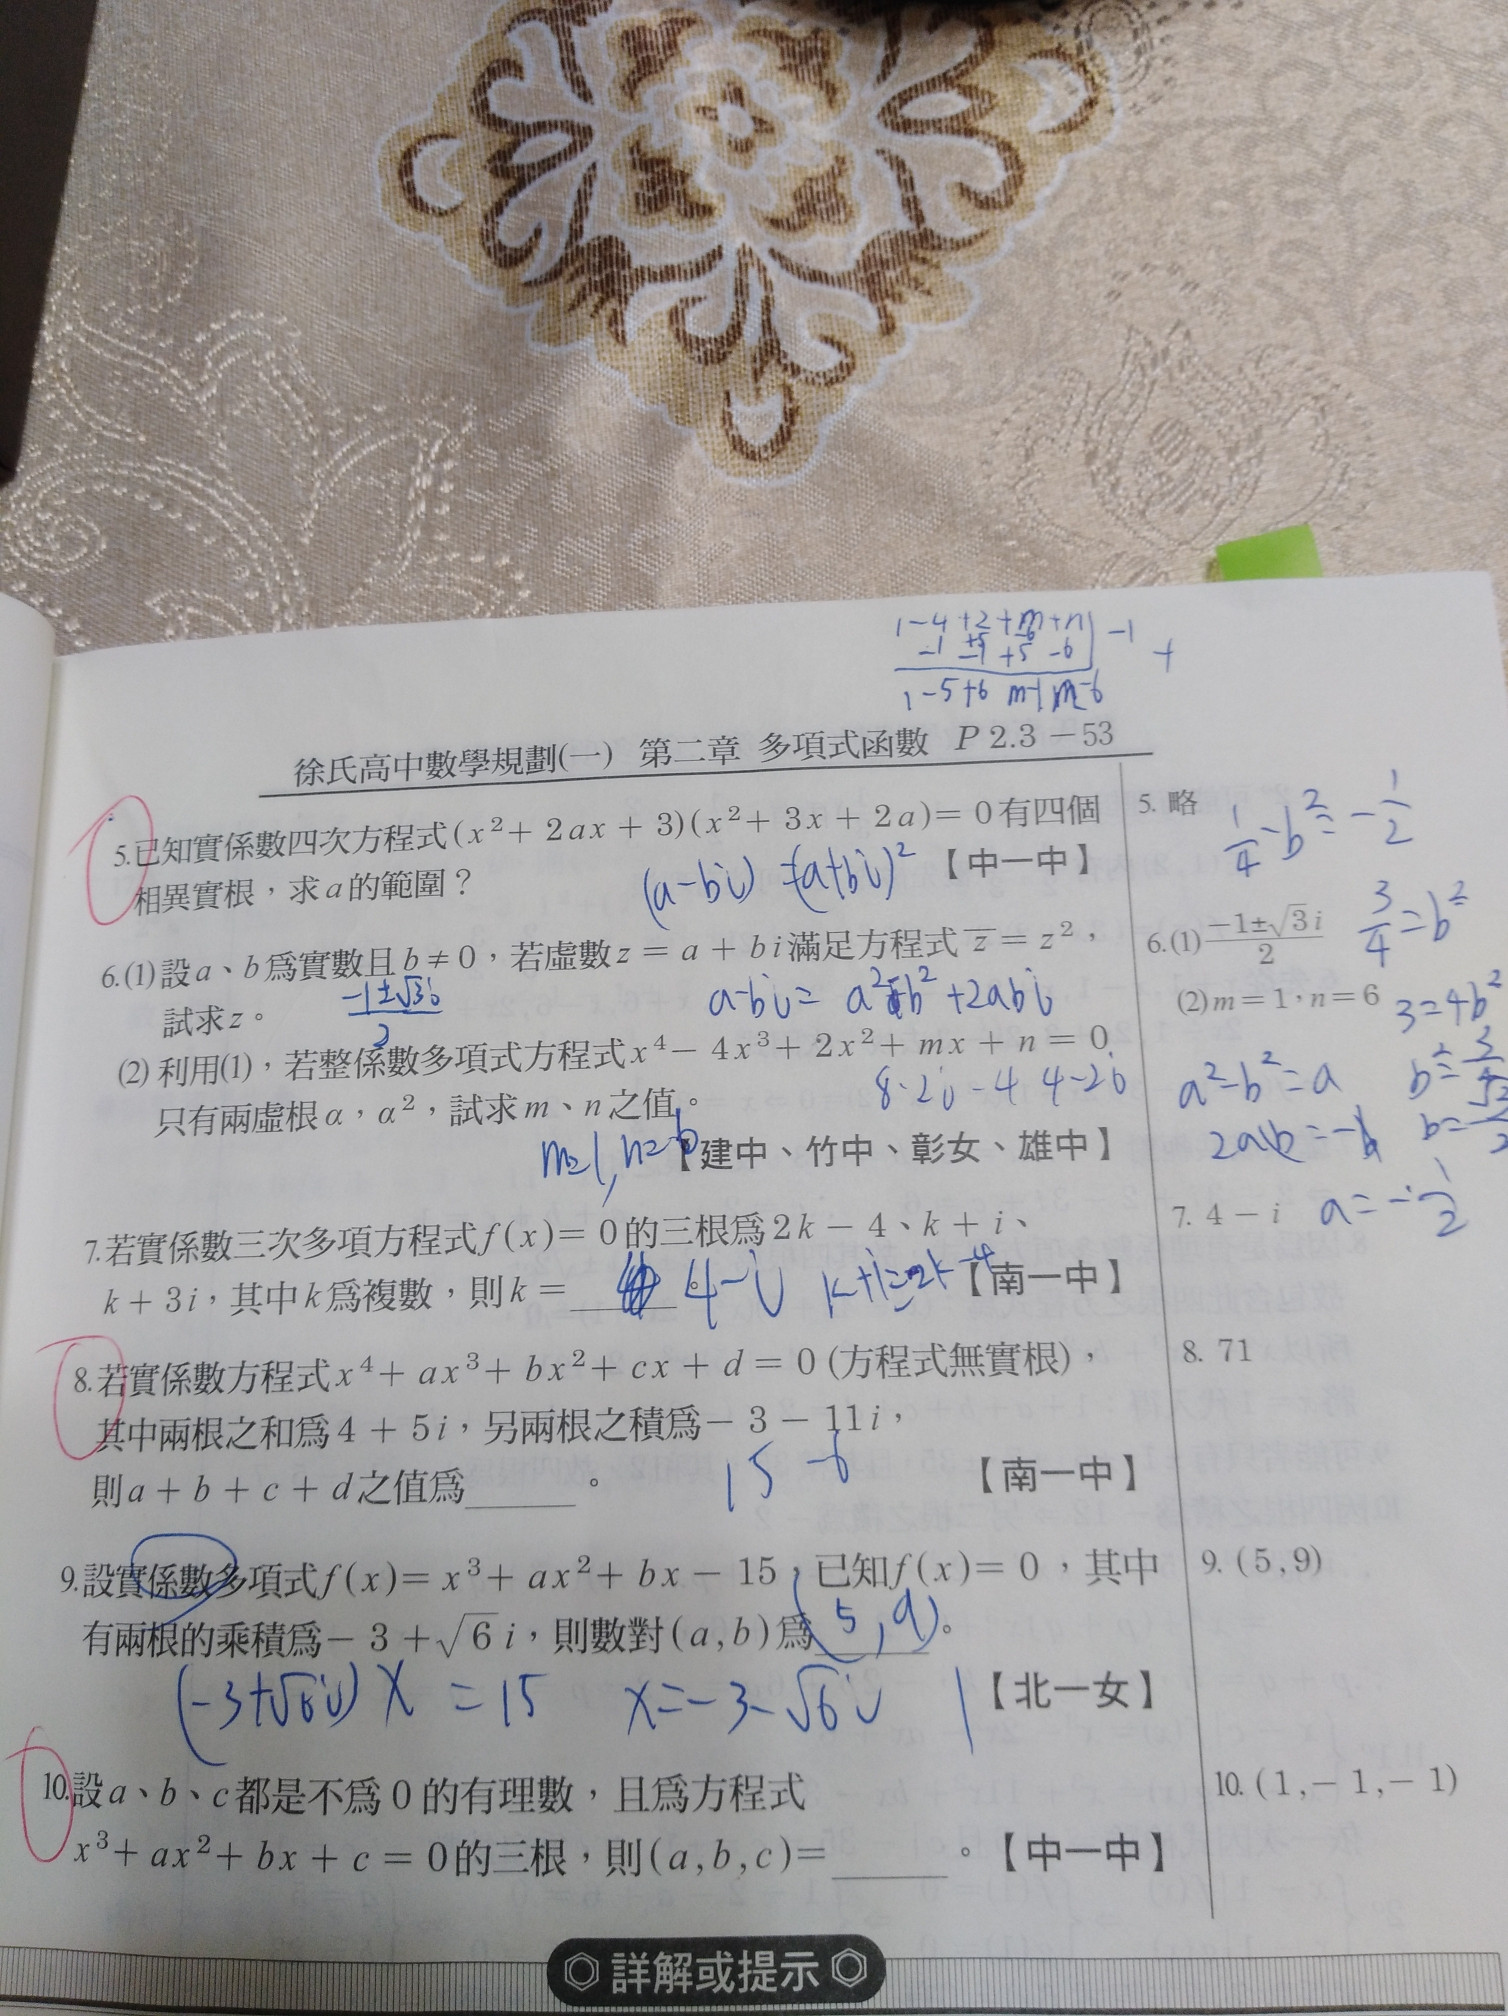 1-4+2+m+n -1 +
1-5+6 m-1 m-6
徐氏高中數學規劃(一) 第二章 多項式函數 P 2.3-53
5.已知實係數四次方程式(x²+2ax+3)(x²+3x+2a)=0有四個
相異實根,求a的範圍? 【中一中】
(a-bi) =(a+bi)²
6.(1)設a、b爲實數且b≠0,若虛數z=a+bi滿足方程式z̅=z²,
試求z。
-1±√3i
2
a-bi= a²-b²+2abi
(2)利用(1),若整係數多項式方程式x⁴-4x³+2x²+mx+n=0
只有兩虛根α,α²,試求m、n之值。
【建中、竹中、彰女、雄中】
m=1, n=6
7.若實係數三次多項方程式f(x)=0的三根爲2k-4、k+i、
k+3i,其中k爲複數,則k=______。 【南一中】
4-i k+i=2k-4
8.若實係數方程式x⁴+ax³+bx²+cx+d=0(方程式無實根),
其中兩根之和爲4+5i,另兩根之積爲-3-11i,
則a+b+c+d之值爲______。 【南一中】
15 -6
9.設實係數多項式f(x)=x³+ax²+bx-15,已知f(x)=0,其中
有兩根的乘積爲-3+√6i,則數對(a,b)爲______。
(5,9)
(-3+√6i)x =15 x=-3-√6i
【北一女】
10.設a、b、c都是不爲0的有理數,且爲方程式
x³+ax²+bx+c=0的三根,則(a,b,c)=______。【中一中】
5. 略
1/4-b²=-1/2
3/4=b²
6.(1) (-1±√3i)/2
(2)m=1,n=6
3=4b²
a²-b²=a
2ab=-b
a=-1/2
7. 4-i
8. 71
9. (5,9)
10. (1,-1,-1)
詳解或提示